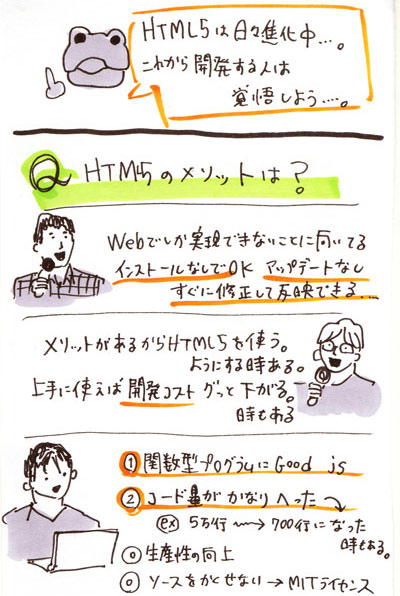 HTML5は日々進化中…。
これから開発する人は
覚悟しよう…。
Q HTM5のメリットは?
Webでしか実現できないことに向いてる
インストールなしでOK アップデートなし
すぐに修正して反映できる…
メリットがあるからHTML5を使う。
ようにする時ある。
上手に使えば開発コストグッと下がる。
時もある
① 関数型プログラムにGood js
② コード量がかなりへった
ex 5万行 → 700行になった
時もある。
◎ 生産性の向上
◎ ソースをかくせない→MITライセンス